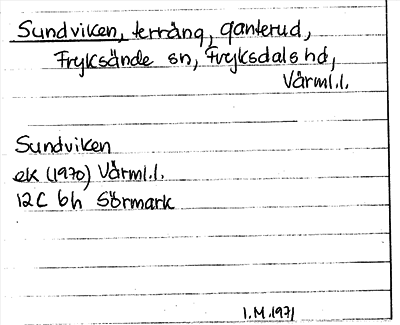 Sundviken, terräng, Ganterud,
Fryksände sn, Fryksdals hd,
Värml.l.
Sundviken
ek (1970) Värml.l.
12C 6h Sörmark
I.M.1971